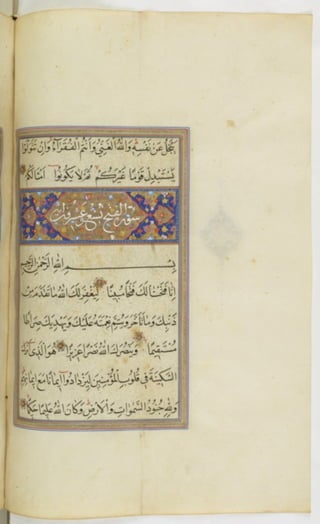 يبخل عن نفسه والله الغني وأنتم الفقراء وإن تتولوا
يستبدل قوما غيركم ثم لا يكونوا أمثالكم
سورة الفتح تسع وعشرون آية
بسم الله الرحمن الرحيم
إنا فتحنا لك فتحا مبينا ليغفر لك الله ما تقدم من
ذنبك وما تأخر ويتم نعمته عليك ويهديك صراطا
مستقيما وينصرك الله نصرا عزيزا هو الذي أنزل
السكينة في قلوب المؤمنين ليزدادوا إيمانا مع إيمانهم
ولله جنود السموات والأرض وكان الله عليما حكيما